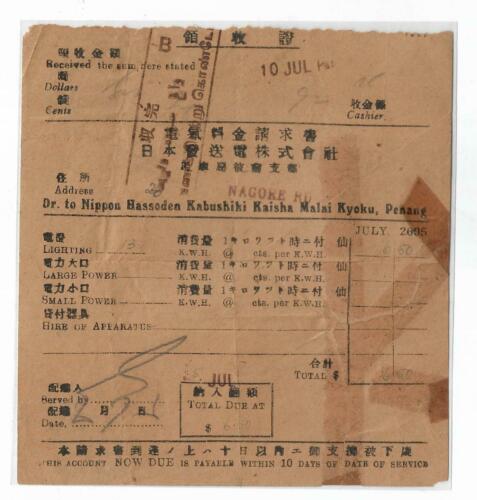 領收證
領收金額
Received the sum here stated
10 JUL
B
弗
Dollars
仙
Cents
收金係
Cashier.
電氣料金請求書
日本發送電株式會社
馬來局彼南支部
住所
Address
NAGORE RD
Dr. to Nippon Hassoden Kabushiki Kaisha Malai Kyoku, Penang
JULY. 2605
電燈 消費量 1キロワツト時ニ付 仙
LIGHTING 13 K.W.H. @ cts. per K.W.H. 6 50
電力大口 消費量 1キロワツト時ニ付 仙
LARGE POWER K.W.H. @ cts. per K.W.H.
電力小口 消費量 1キロワツト時ニ付 仙
SMALL POWER K.W.H. @ cts. per K.W.H.
貸付器具
HIRE OF APPARATUS
合計
TOTAL $ 6.50
配達人
Served by
JUL
納入總額
TOTAL DUE AT
$ 6.50
配達 月 日
Date,
本請求書到達ノ上ハ十日以內ニ御支拂被下度
THIS ACCOUNT NOW DUE IS PAYABLE WITHIN 10 DAYS OF DATE OF SERVICE